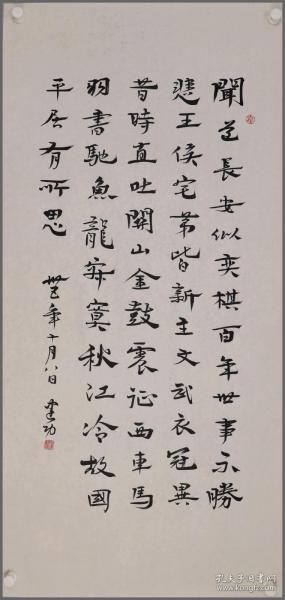 聞道長安似奕棋百年世事不勝
悲王侯宅第皆新主文武衣冠異
昔時直北關山金鼓震征西車馬
羽書馳魚龍寂寞秋江冷故國
平居有所思
卅五年十月八日 建功
孔夫子旧书网